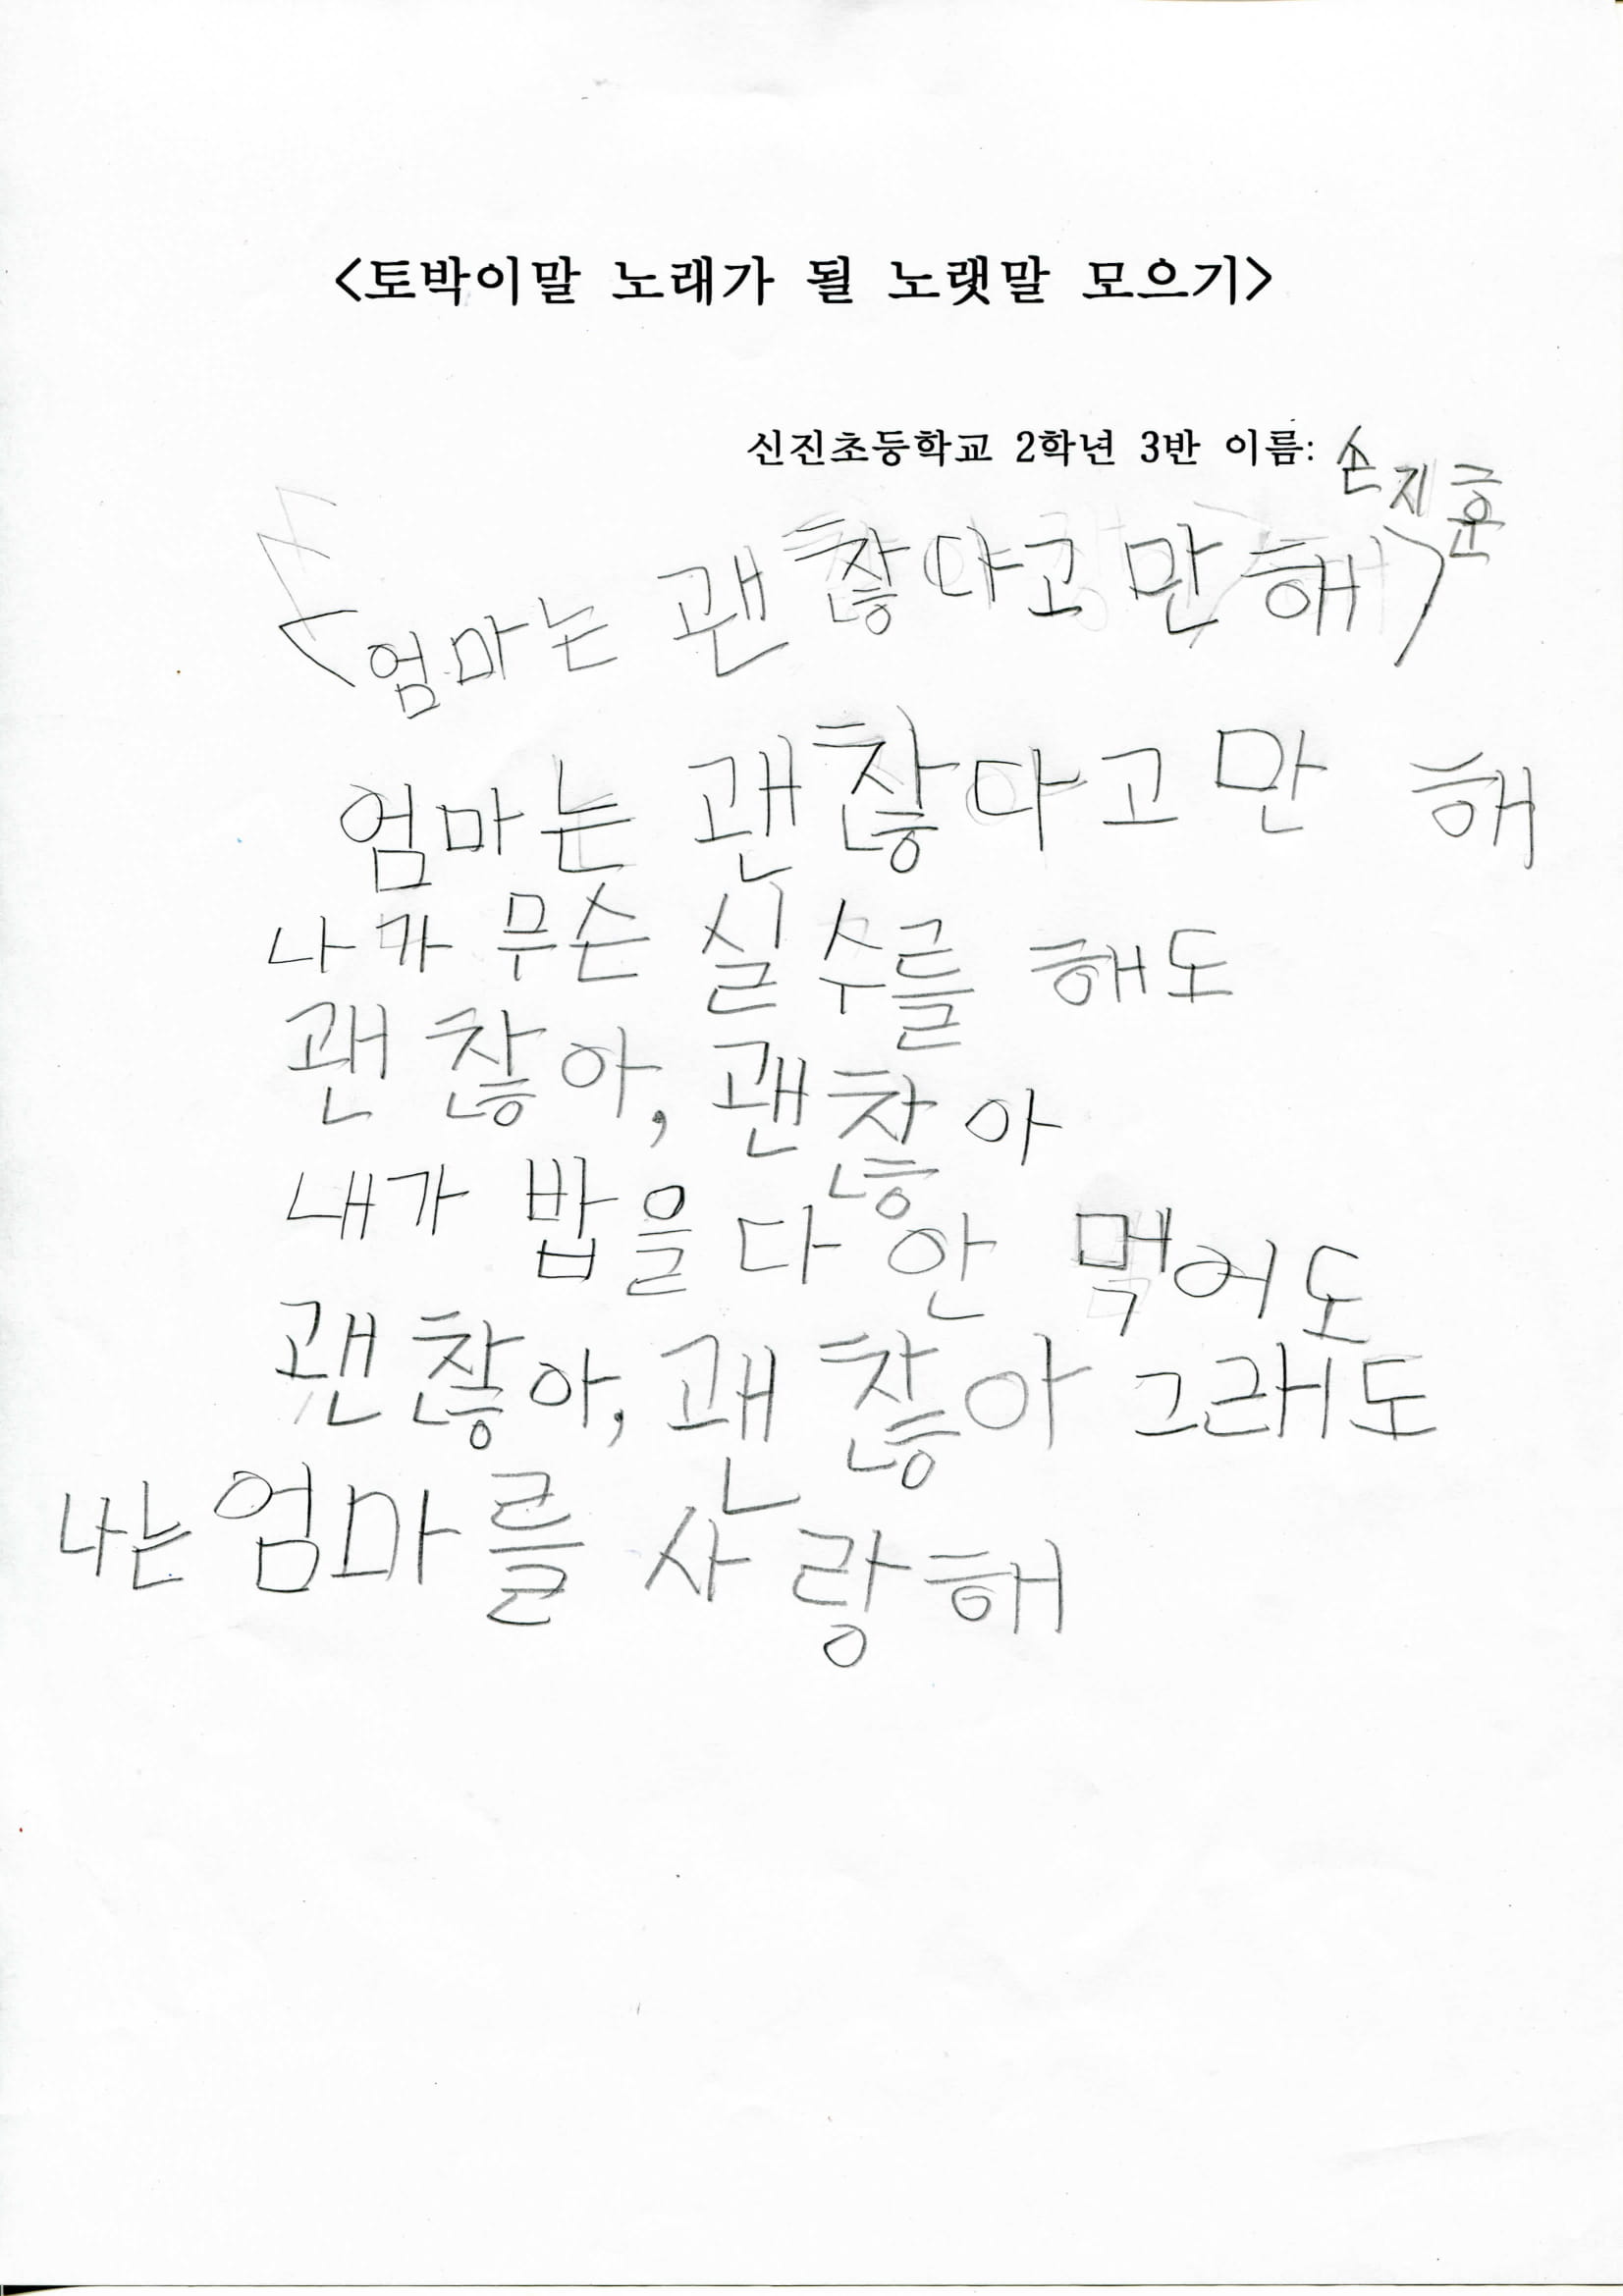 <토박이말 노래가 될 노랫말 모으기>
신진초등학교 2학년 3반 이름: 손지훈
<엄마는 괜찮다고만해>
엄마는 괜찮다고만 해
나가 무슨 실수를 해도
괜찮아, 괜찮아
내가 밥을 다 안 먹어도
괜찮아, 괜찮아 그래도
나는 엄마를 사랑해